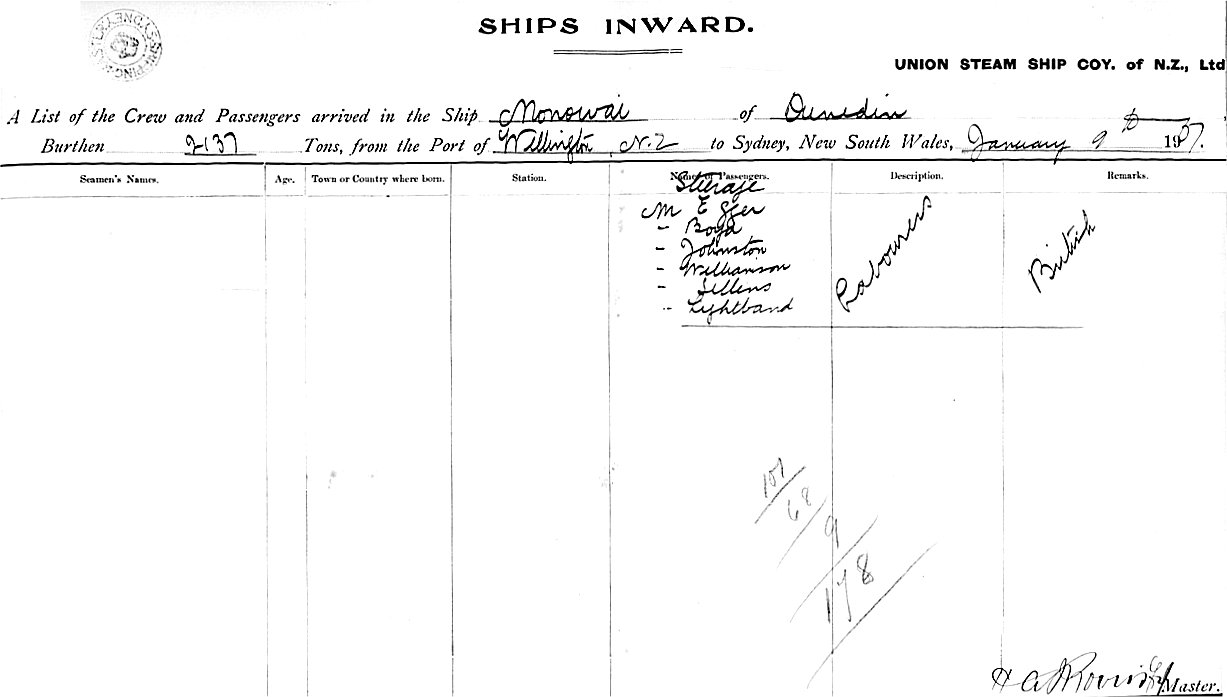 SHIPS INWARD.
UNION STEAM SHIP COY. of N.Z., Ltd
A List of the Crew and Passengers arrived in the Ship Monowai of Dunedin
Burthen 2137 Tons, from the Port of Wellington N.Z to Sydney, New South Wales, January 9th 1907.
Seamen's Names. Age. Town or Country where born. Station. Names of Passengers. Description. Remarks.
Steerage
M E
- Boyd
- Johnston
- Williamson
- Sellens
- Lightband
Labourers
British
101
68
9
178
H A
Master.